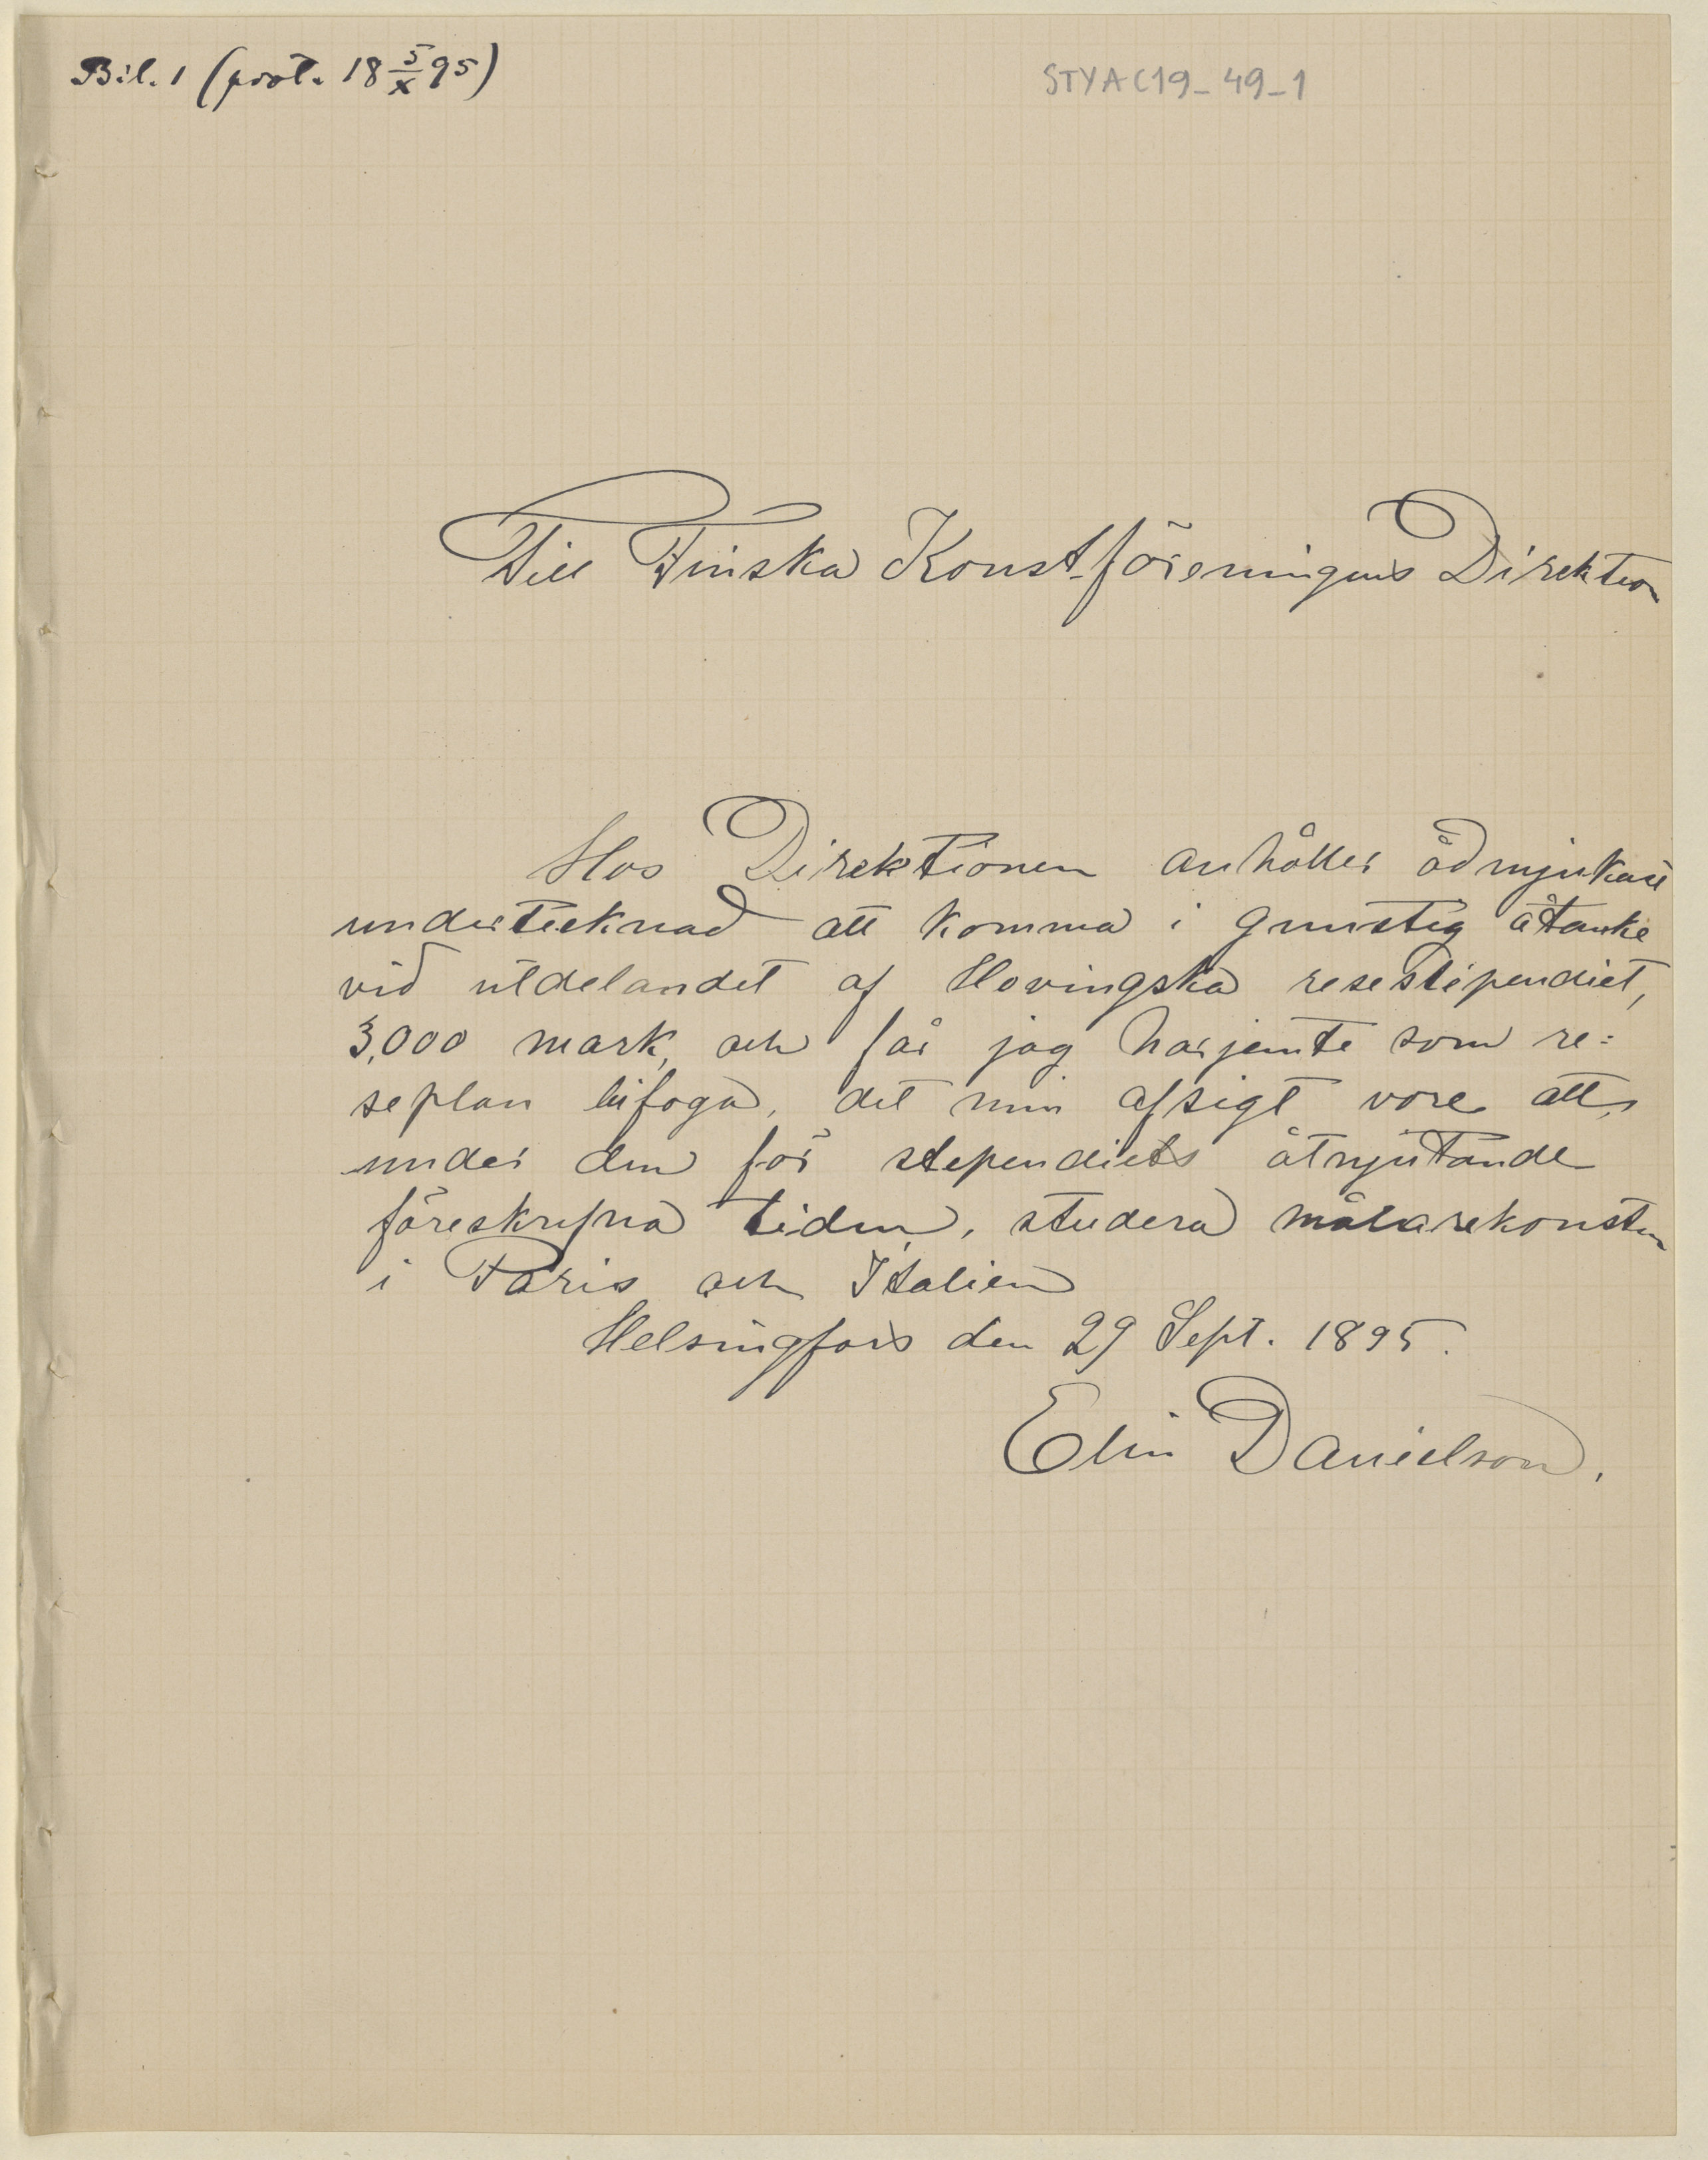 Bil. 1 (prot. 18 5/X 95)
STYA C19_49_1
Till Finska Konst-föreningens Direktion
Hos Direktionen anhåller ödmjukast
undertecknad att komma i gunstig åtanke
vid utdelandet af Hovingska resestipendiet,
3,000 mark, och får jag härjemte som re:
seplan bifoga, det min afsigt vore att,
under den för stipendiets åtnjutande
föreskrifna tiden, studera målarekonsten
i Paris och Italien
Helsingfors den 29 Sept. 1895.
Elin Danielson.